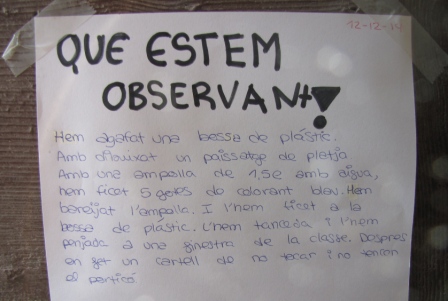 12-12-14
QUE ESTEM
OBSERVANT!
Hem agafat una bossa de plàstic.
Amb dibuixat un paisatge de platja
Amb una ampolla de 1,5l amb aigua,
hem ficat 5 gotes de colorant blau. Hem
barrejat l'ampolla. I l'hem ficat a la
bossa de plàstic. L'hem tancada i l'hem
penjada a una finestra de la classe. Despres
em fet un cartell de no tocar i no tenren
el porticó